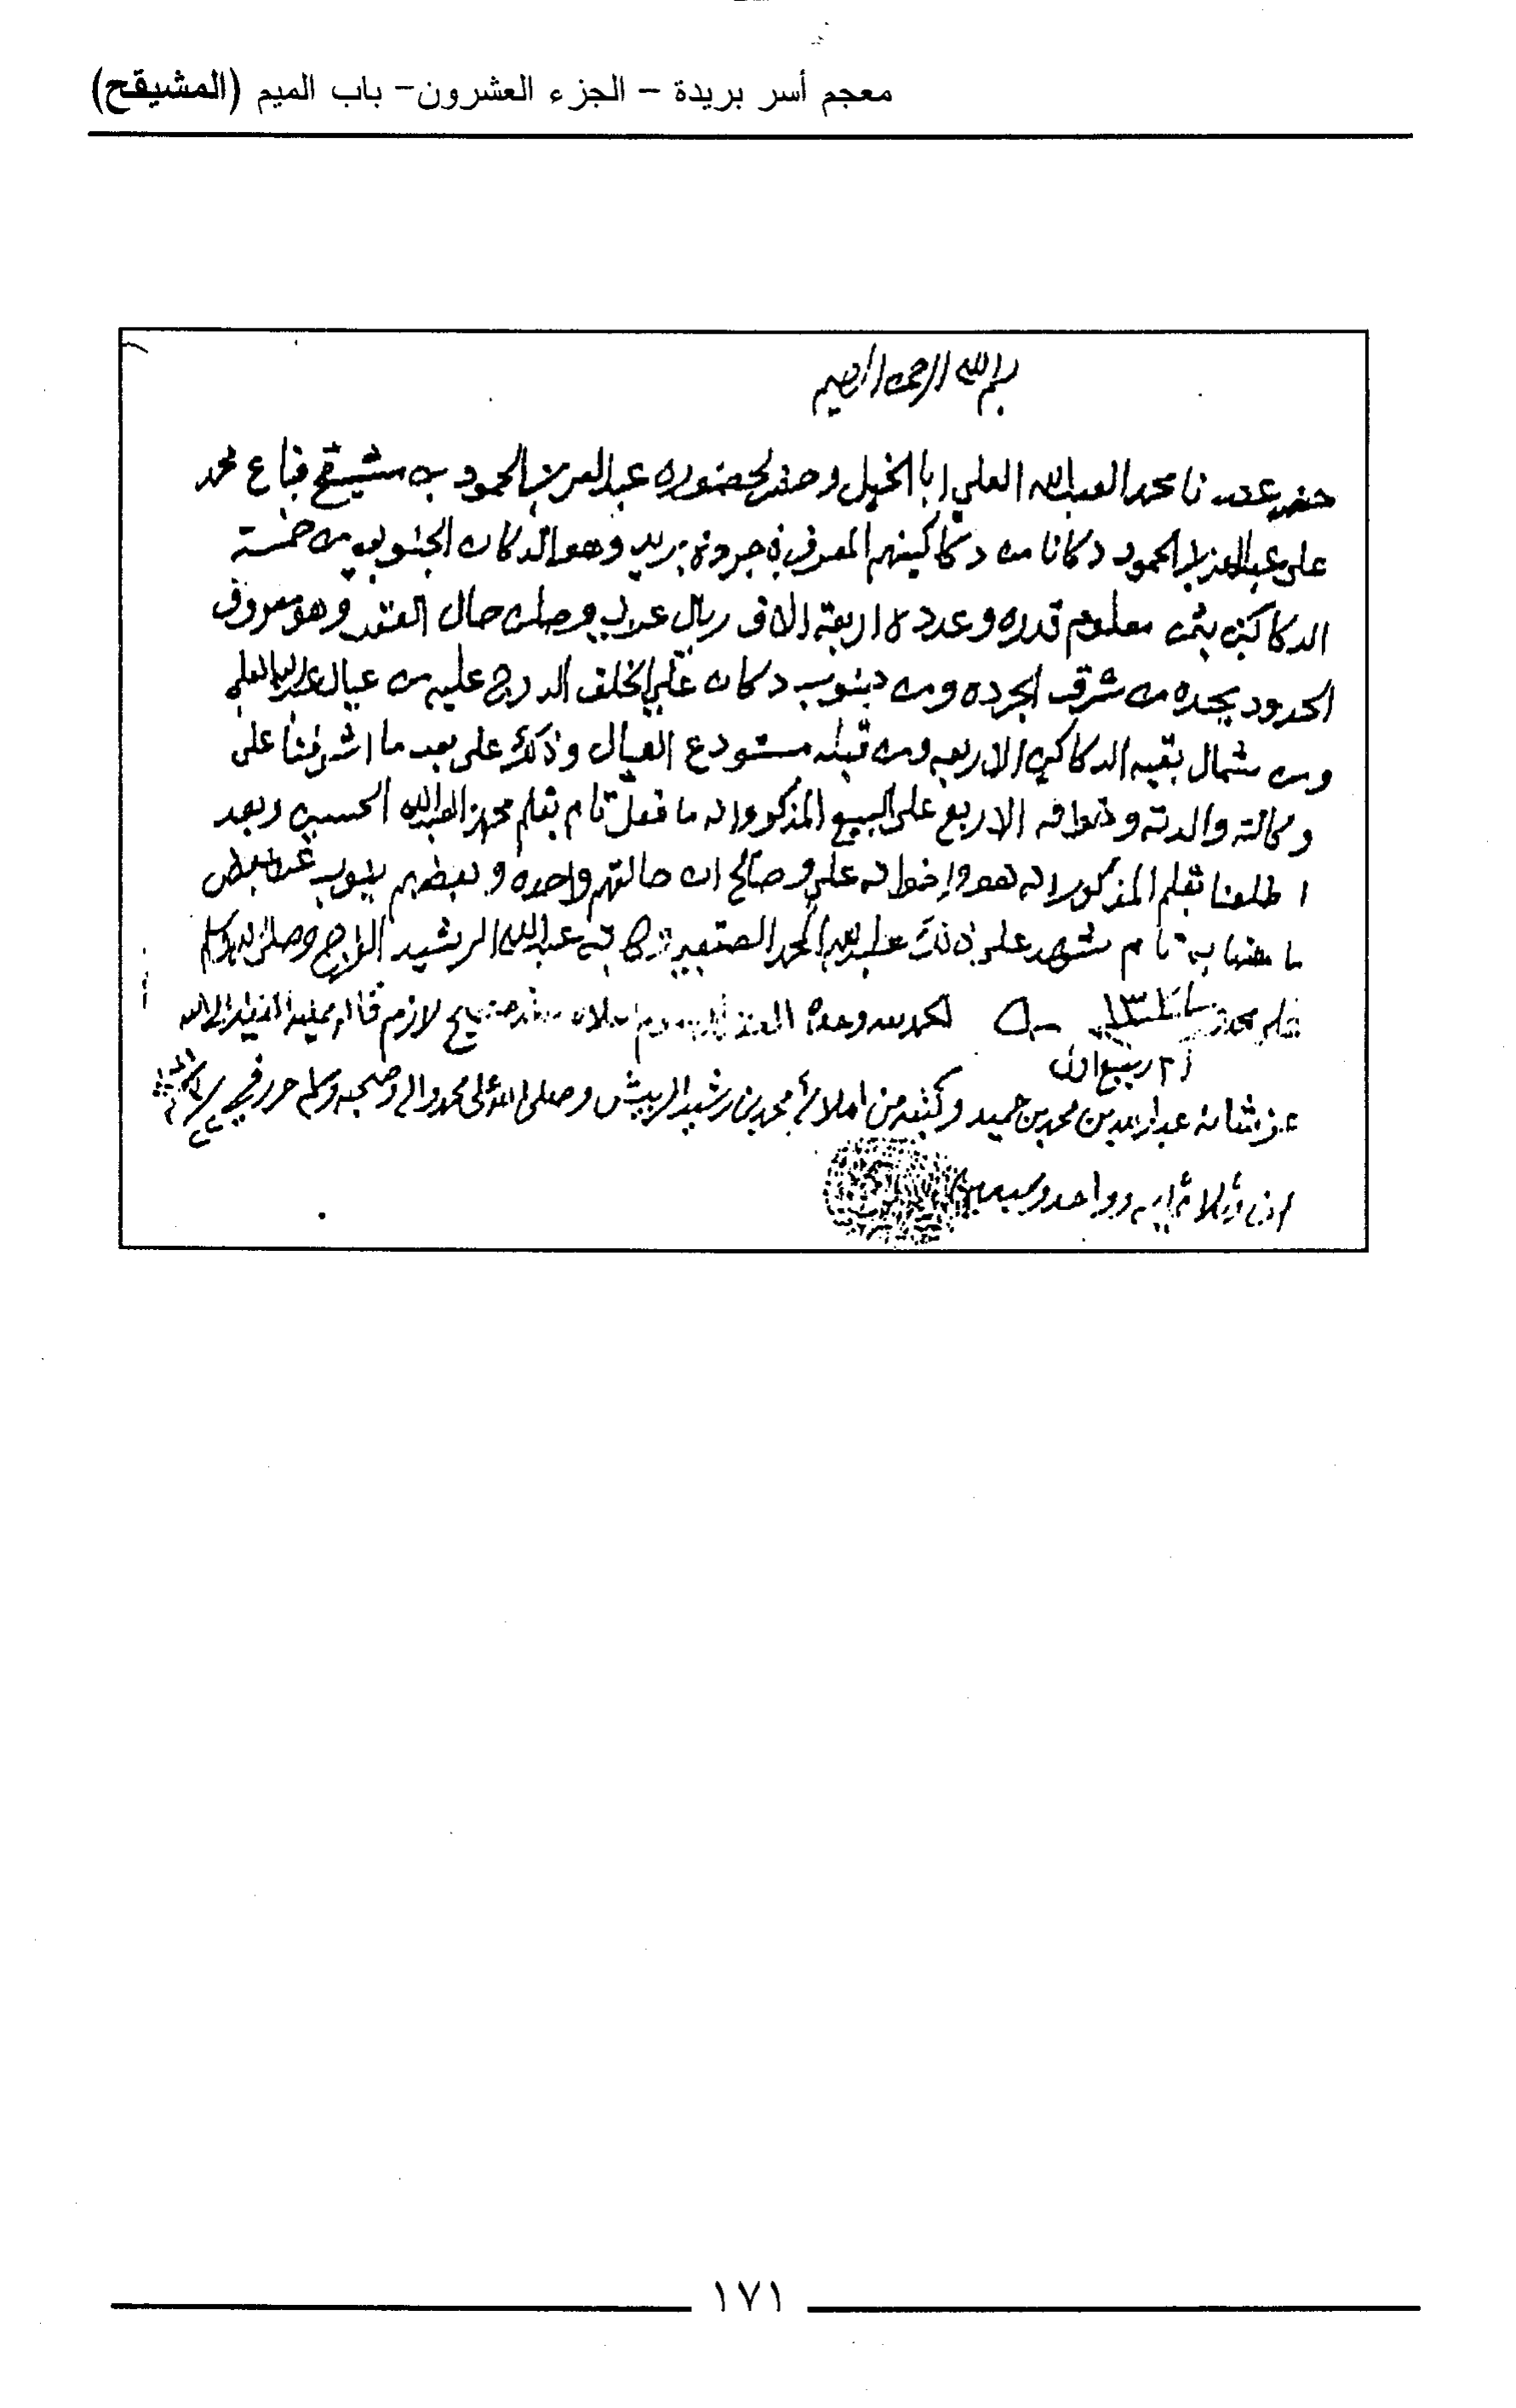 معجم أسر بريدة – الجزء العشرون– باب الميم (المشيقح)
بسم الله الرحمن الرحيم
حضر عندنا محمد العبدالله العلي ابا الخيل وحضر لحضوره عبدالعزيز الحمود بن مشيقح فباع محمد
على عبدالعزيز الحمود دكانا من دكاكينهم المعروف في جردة بريده وهو الدكان الجنوبي من خمسة
الدكاكين بثمن معلوم قدره وعدده اربعة الاف ريال عربي وصلن حال العقد وهو معروف
الحدود يحده من شرق الجرده ومن جنوب دكان علي الخلف الدرج عليه من عيال عبدالله العلي
ومن شمال بقيه الدكاكين الاربعه ومن قبله مستودع العيال وذلك على بعد ما اشرفنا على
وكالة والدته وخواته الاربع على البيع المذكور وانه ما فعل تام بقلم محمد العبدالله الحسين وبعد
اطلعنا بقلم المذكور انه هو واخوانه علي وصالح ان حالتهم واحده وبعضهم ينوب عن بعض
ما مضابه تام شهد على ذلك عبدالله المحمد الصقعبي كاتبه عبدالله الرشيد الفرج وصلى الله وسلم
على محمد الحمد لله وحده العقد صحيح لازم قاله ممليه الفقير الى الله
٢١ ربيع اول
عز شانه عبدالله بن محمد بن حميد وكتبه من املائه محمد بن رشيد الربيش وصلى الله على محمد واله وصحبه وسلم حرر في
الف وثلاثمايه وواحد وسبعين
١٧١